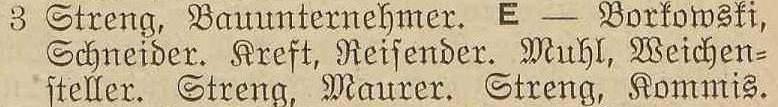 3 Streng, Bauunternehmer. E — Borkowski,
Schneider. Kreft, Reisender. Muhl, Weichen=
steller. Streng, Maurer. Streng, Kommis.